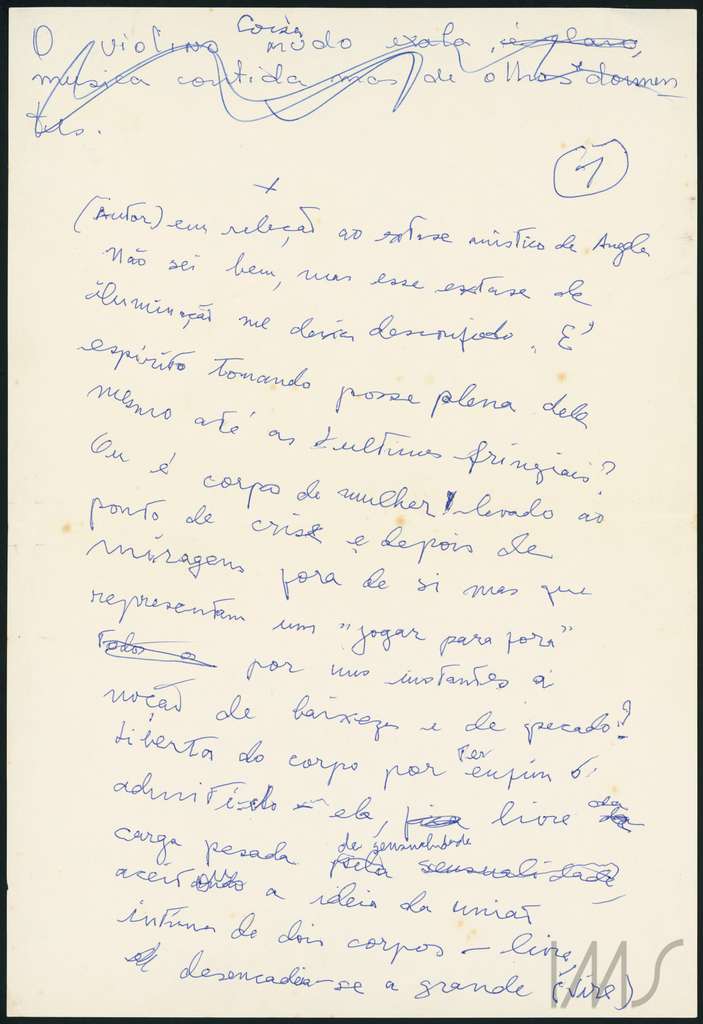 O violino Coisa mudo exala, é claro,
musica contida mas de olhos dormen
tes.
7
+
(Autor) em relação ao extase mistico de Angela
Não sei bem, mas esse extase de
iluminação me deixa desconfiado. É
espírito tomando posse plena dela
mesmo até as ultimas?
Ou é corpo de mulher levado ao
ponto de crise e depois de
miragens fora de si mas que
representam um "jogar para fora"
Todos a por uns instantes a
noção de baixeza e de pecado?
Liberta do corpo por Ter enfim o
admitido – ela, fica livre da
carga pesada de sensualidade pela sensualidade,
aceitando a ideia da união
íntima de dois corpos – livre,
desencadeia-se a grande (vire)
IMS